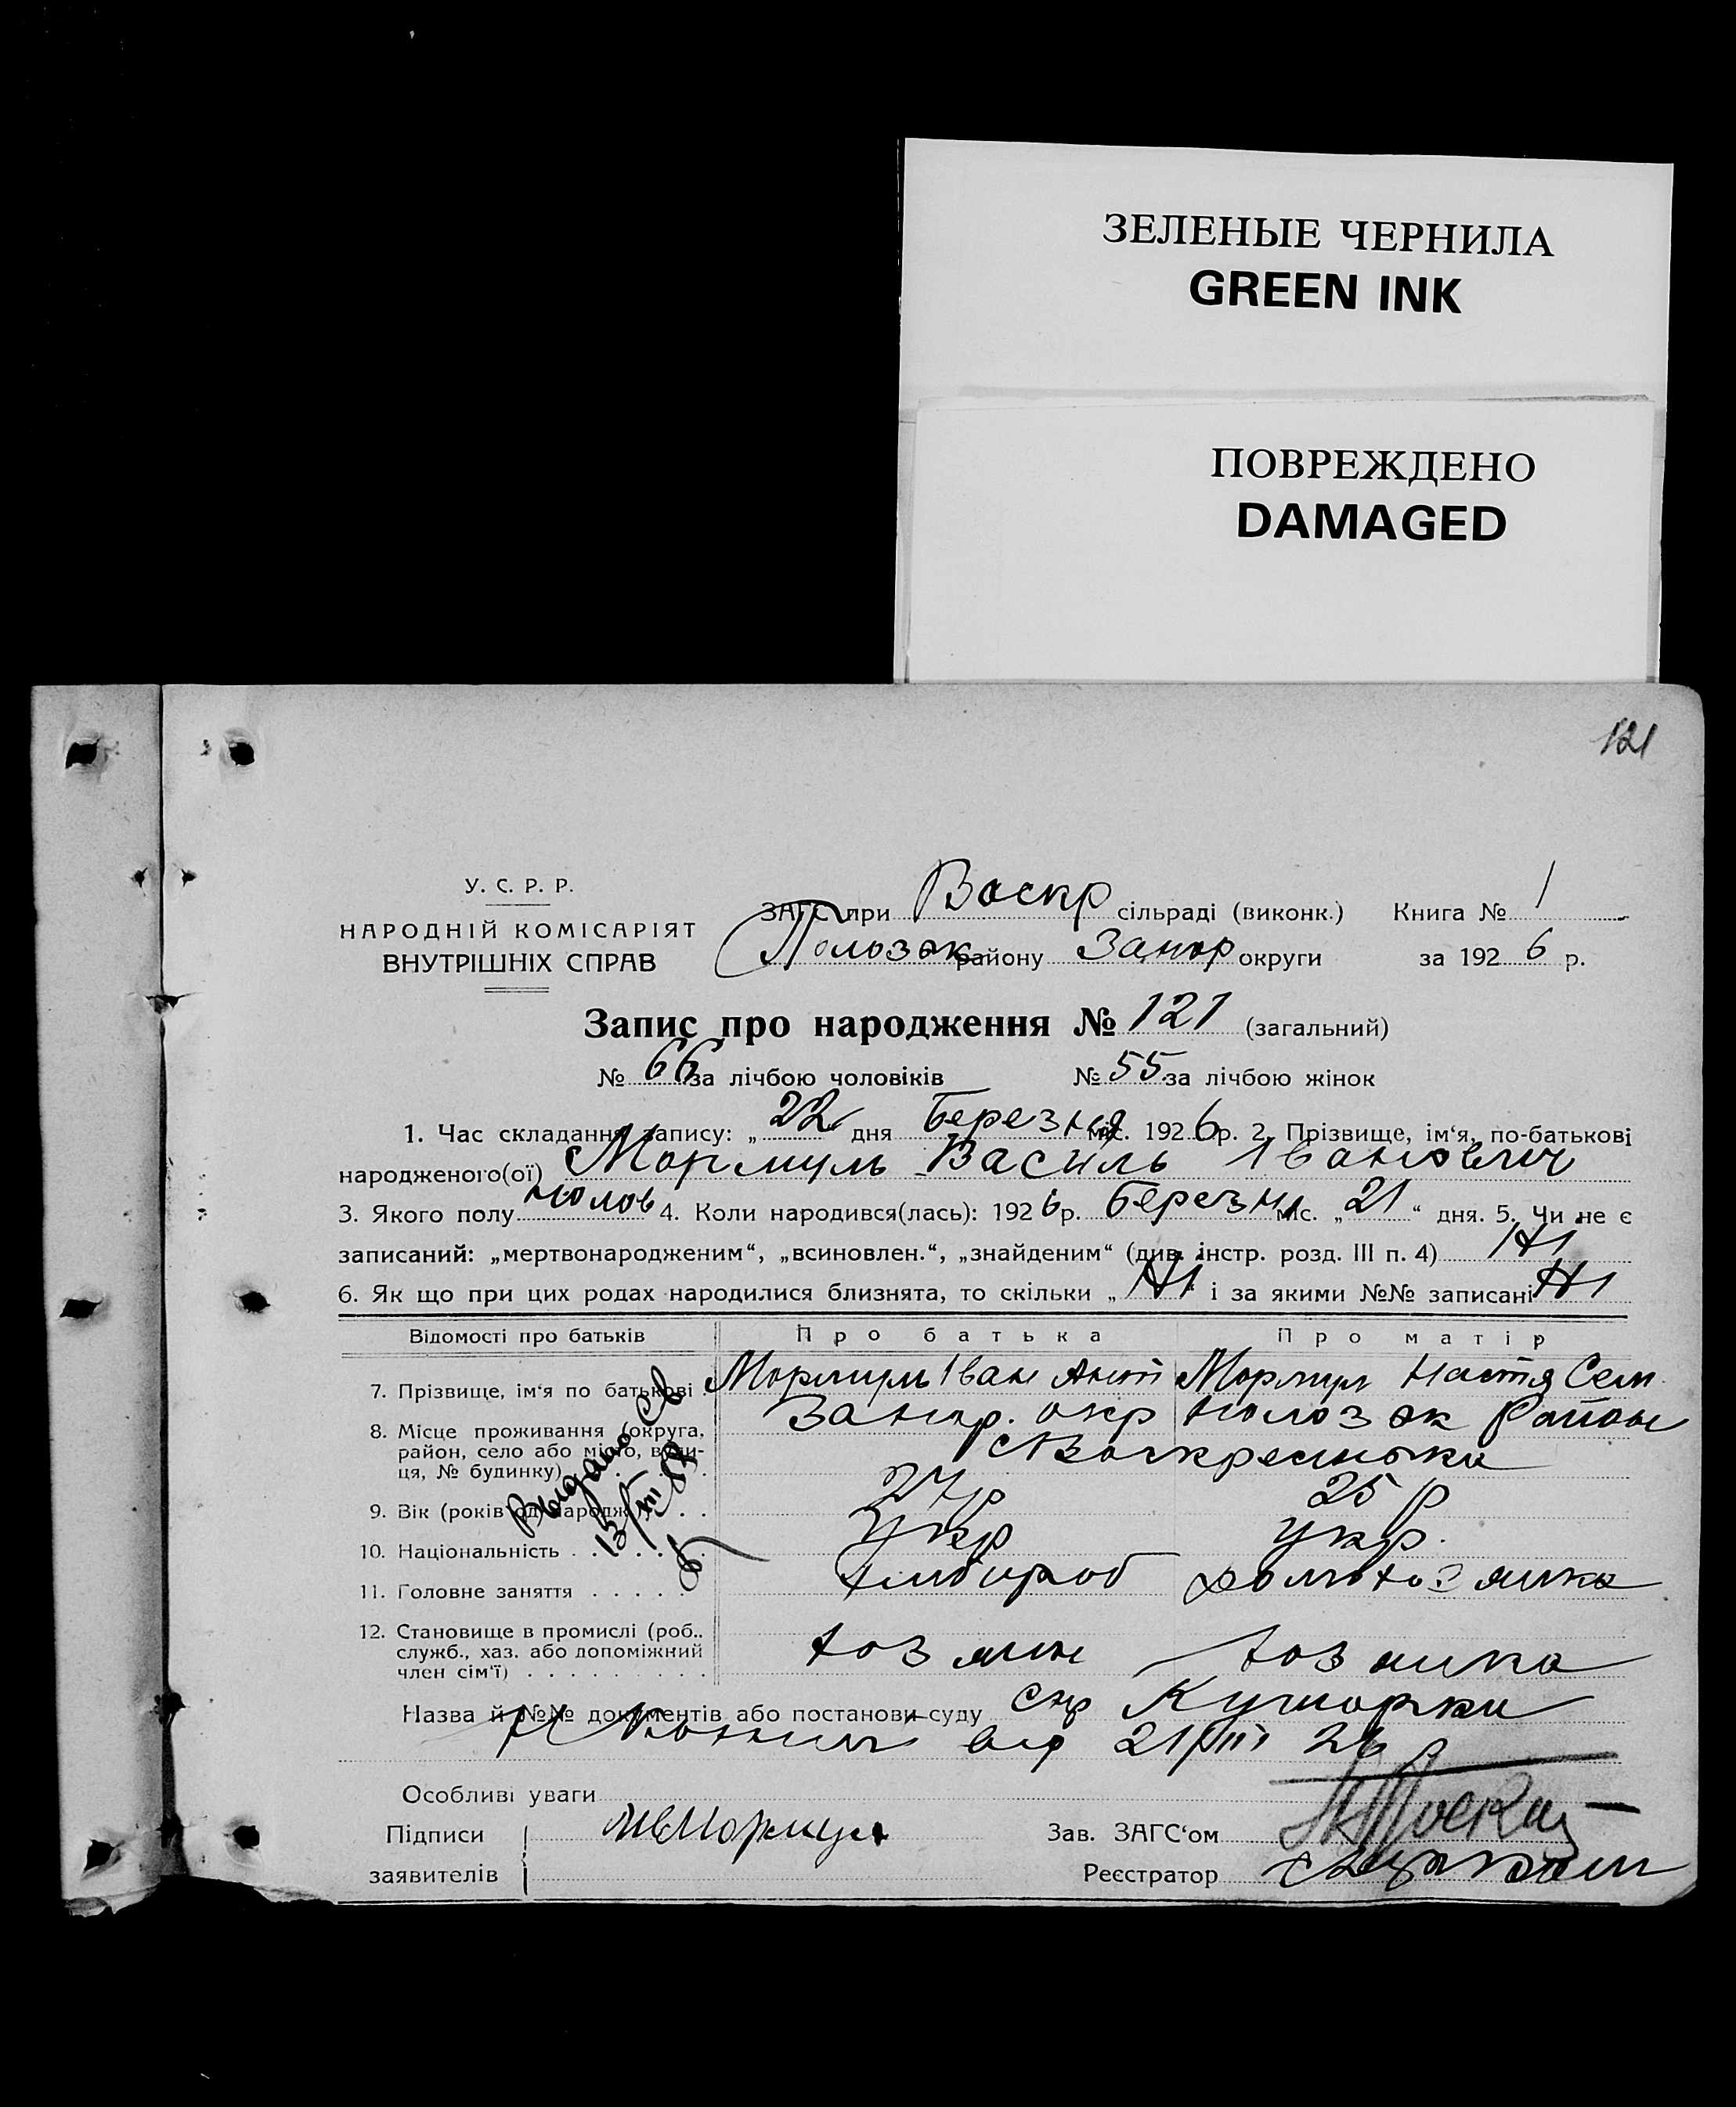 ЗЕЛЕНЫЕ ЧЕРНИЛА
GREEN INK
ПОВРЕЖДЕНО
DAMAGED
121
У. С. Р. Р.
НАРОДНІЙ КОМІСАРІЯТ
ВНУТРІШНІХ СПРАВ
ЗАГС при Воскр сільраді (виконк.) Книга № 1
Полозьк району Запор округи за 1926 р.
Запис про народження № 121 (загальний)
№ 66 за лічбою чоловіків № 55 за лічбою жінок
1. Час складання запису: „22“ дня Березня міс. 1926 р. 2. Прізвище, ім‘я, по-батькові
народженого(ої) Мормуль Василь Іванович
3. Якого полу чолов 4. Коли народився(лась): 1926 р. Березня міс. „21“ дня. 5. Чи не є
записаний: „мертвонародженим“, „всиновлен.“, „знайденим“ (див. інстр. розд. III п. 4) Ні
6. Як що при цих родах народилися близнята, то скільки „Ні“ і за якими №№ записані Ні
Відомості про батьків Про батька Про матір
7. Прізвище, ім‘я по батькові Мормуль Іван Ант Мормул Настя Сем
8. Місце проживання (округа,
район, село або місто, вули-
ця, № будинку)
Запор. окр Полозьк Район
Воскресенька
9. Вік (років од народж.) 27 р 25 р
10. Національність Укр укр.
11. Головне заняття хлібороб домохозяйка
12. Становище в промислі (роб..
служб., хаз. або допоміжний
член сім‘ї)
хозяин хозяйка
Выдано Св
13/VIII
Назва й №№ документів або постанови суду
від 21/III 26
Особливі уваги
Підписи
заявителів
Мормул
Зав. ЗАГС‘ом
Реєстратор